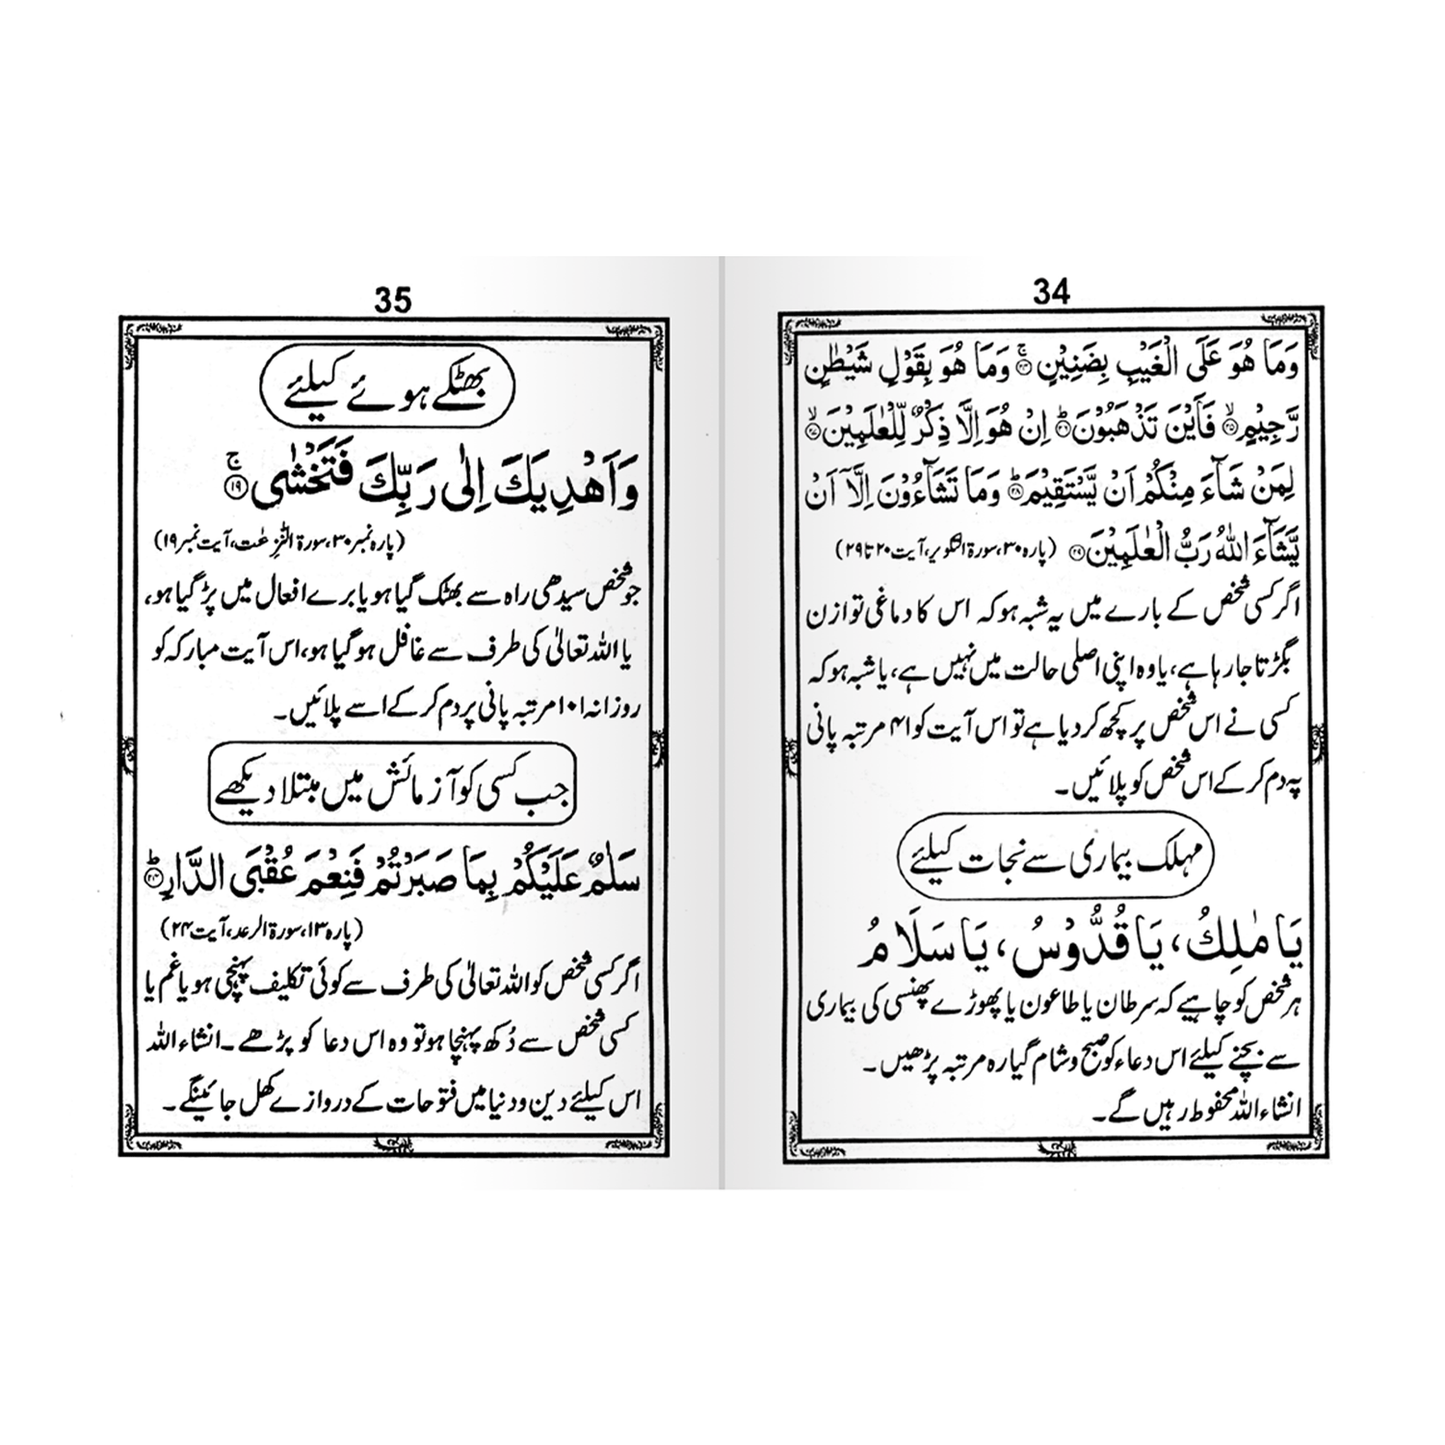 34
وَمَا هُوَ عَلَى الْغَيْبِ بِضَنِيْنٍ ۚ﴿۲۴﴾ وَمَا هُوَ بِقَوْلِ شَيْطٰنٍ
رَّجِيْمٍ ۙ﴿۲۵﴾ فَاَيْنَ تَذْهَبُوْنَ ؕ﴿۲۶﴾ اِنْ هُوَ اِلَّا ذِكْرٌ لِّلْعٰلَمِيْنَ ۙ﴿۲۷﴾
لِمَنْ شَآءَ مِنْكُمْ اَنْ يَّسْتَقِيْمَ ؕ﴿۲۸﴾ وَمَا تَشَآءُوْنَ اِلَّاۤ اَنْ
يَّشَآءَ اللّٰهُ رَبُّ الْعٰلَمِيْنَ ﴿۲۹﴾ (پارہ ۳۰، سورۃ التکویر، آیت ۲۰ تا ۲۹)
اگر کسی شخص کے بارے میں یہ شبہ ہو کہ اس کا دماغی توازن
بگڑتا جا رہا ہے، یا وہ اپنی اصلی حالت میں نہیں ہے، یا شبہ ہو کہ
کسی نے اس شخص پر کچھ کر دیا ہے تو اس آیت کو ۴۱ مرتبہ پانی
پہ دم کر کے اس شخص کو پلائیں۔
مہلک بیماری سے نجات کیلئے
يَا مٰلِكُ، يَا قُدُّوْسُ، يَا سَلَامُ
ہر شخص کو چاہیے کہ سرطان یا طاعون یا پھوڑے پھنسی کی بیماری
سے بچنے کیلئے اس دعاء کو صبح و شام گیارہ مرتبہ پڑھیں۔
انشاء اللہ محفوظ رہیں گے۔
35
بھٹکے ہوئے کیلئے
وَاَهْدِيَكَ اِلٰى رَبِّكَ فَتَخْشٰى ۚ﴿۱۹﴾
(پارہ نمبر ۳۰، سورۃ النّٰزِعٰت، آیت نمبر ۱۹)
جو شخص سیدھی راہ سے بھٹک گیا ہو یا برے افعال میں پڑ گیا ہو،
یا اللہ تعالیٰ کی طرف سے غافل ہو گیا ہو، اس آیت مبارکہ کو
روزانہ ۱۰۱ مرتبہ پانی پر دم کر کے اسے پلائیں۔
جب کسی کو آزمائش میں مبتلا دیکھے
سَلٰمٌ عَلَيْكُمْ بِمَا صَبَرْتُمْ فَنِعْمَ عُقْبَى الدَّارِ ؕ﴿۲۴﴾
(پارہ ۱۳، سورۃ الرعد، آیت ۲۴)
اگر کسی شخص کو اللہ تعالیٰ کی طرف سے کوئی تکلیف پہنچی ہو یا غم یا
کسی شخص سے دُکھ پہنچا ہو تو وہ اس دعا کو پڑھے۔ انشاء اللہ
اس کیلئے دین و دنیا میں فتوحات کے دروازے کھل جائینگے۔